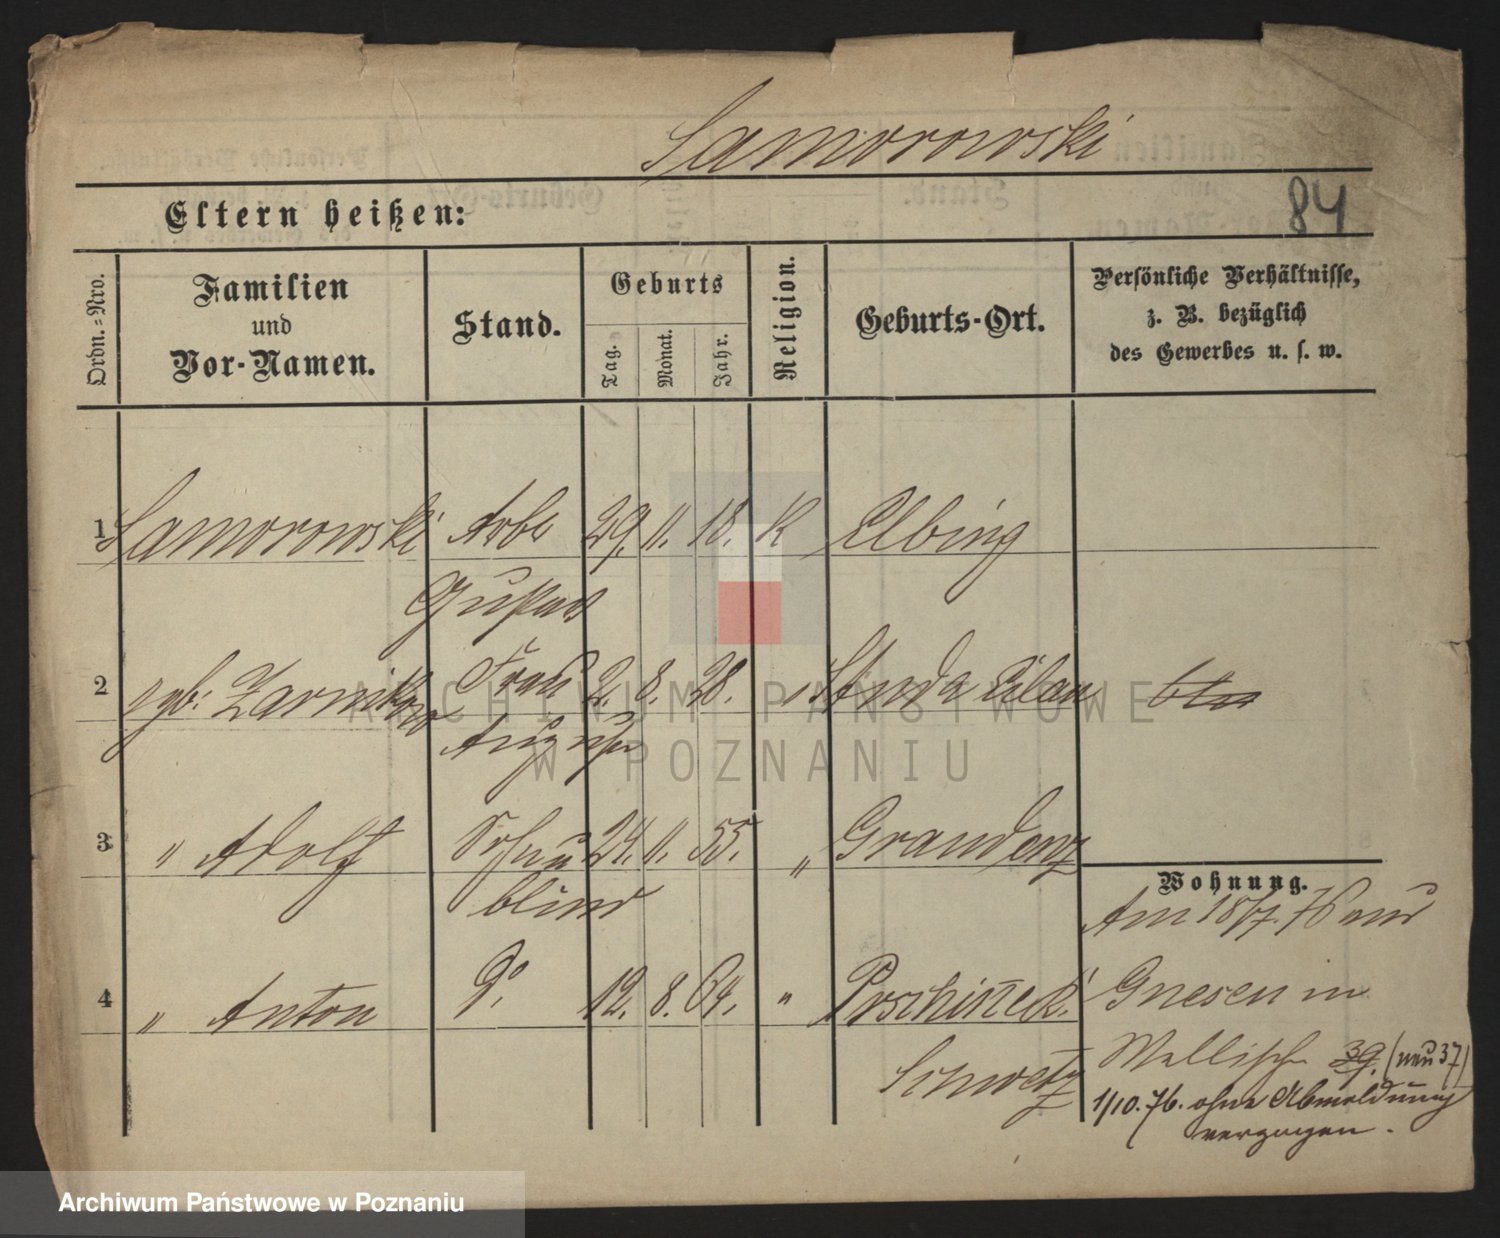 Samorowski
84
Eltern heißen:
Ordn.=Nro.
Familien
und
Vor-Namen.
Stand.
Geburts
Tag.
Monat.
Jahr.
Religion.
Geburts-Ort.
Persönliche Verhältnisse,
z. B. bezüglich
des Gewerbes u. s. w.
1 Samorowski Arb 29. 11. 18. K Elbing
Gustav
2 geb. Frau 2. 8. 28. "
August
3 " Adolf Sohn 24. 11. 55. " Graudenz
blind
Wohnung.
Am 18/7. 76 aus
4 " Anton do. 12. 8. 64. "
Gnesen in
Schwetz
Wallische 39. (neu 37)
1/10. 76. ohne Abmeldung
verzogen.
ARCHIWUM PAŃSTWOWE
W POZNANIU
Archiwum Państwowe w Poznaniu